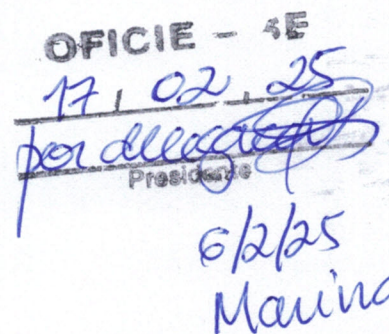 OFICIE - SE
17, 02, 25
por delegação
Presidente
6/2/25
Marina